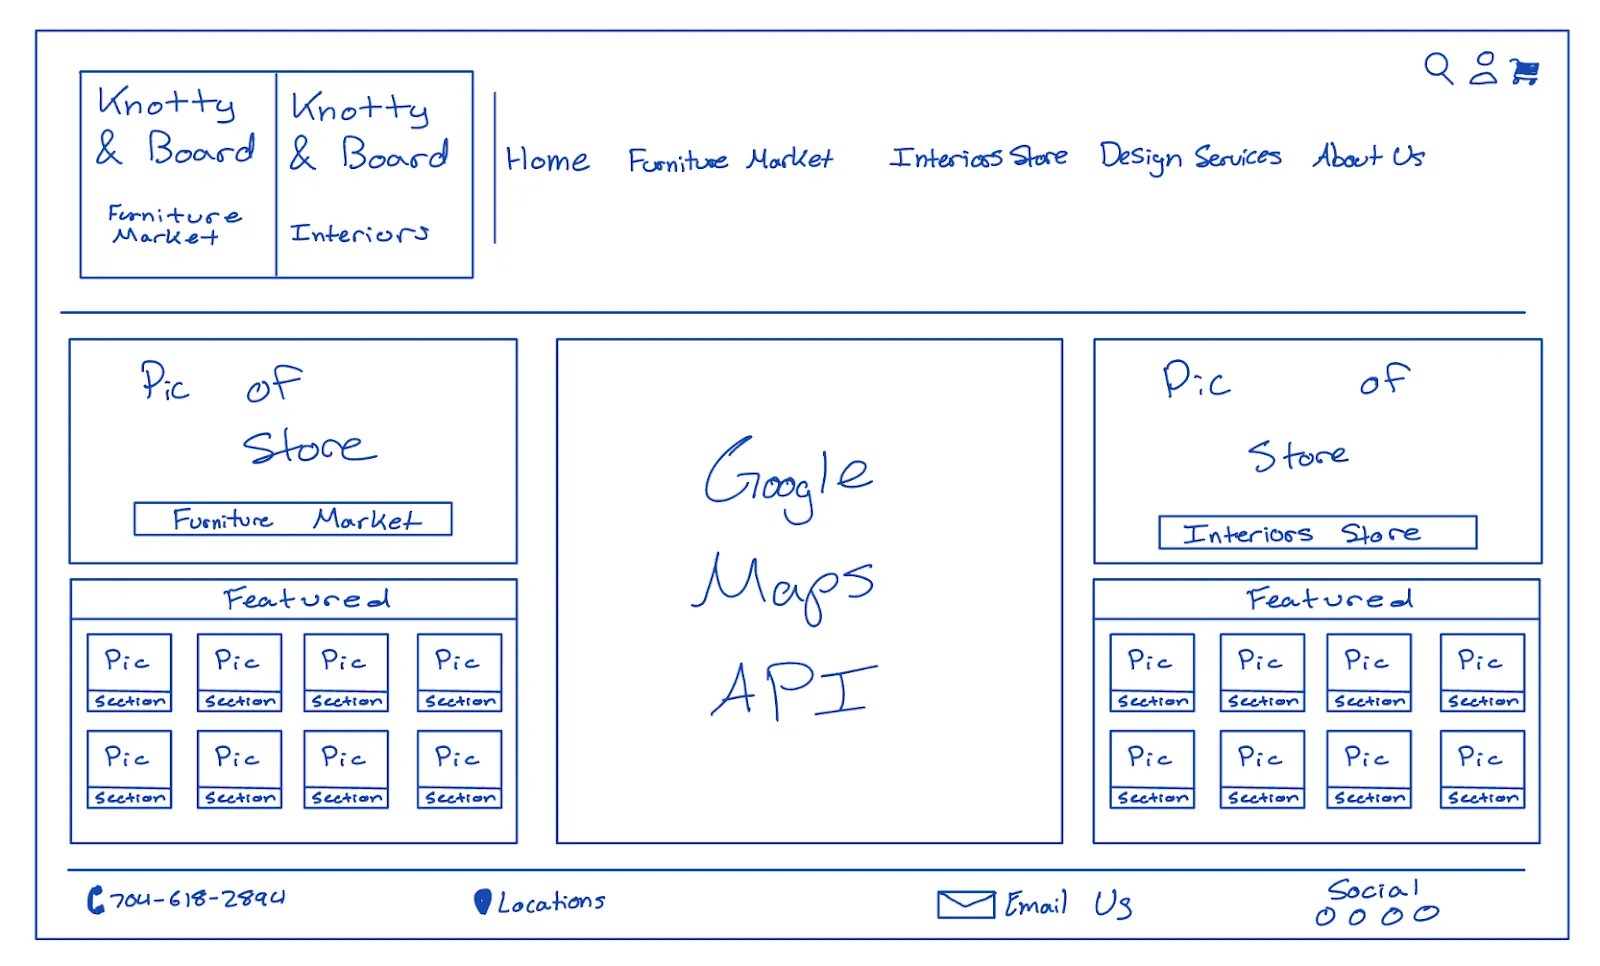 Knotty
& Board
Furniture
Market
Knotty
& Board
Interiors
Home Furniture Market Interiors Store Design Services About Us
Pic of
Store
Furniture Market
Featured
Pic Pic Pic Pic
Section Section Section Section
Pic Pic Pic Pic
Section Section Section Section
Google
Maps
API
Pic of
Store
Interiors Store
Featured
Pic Pic Pic Pic
Section Section Section Section
Pic Pic Pic Pic
Section Section Section Section
704-618-2894
Locations
Email Us
Social